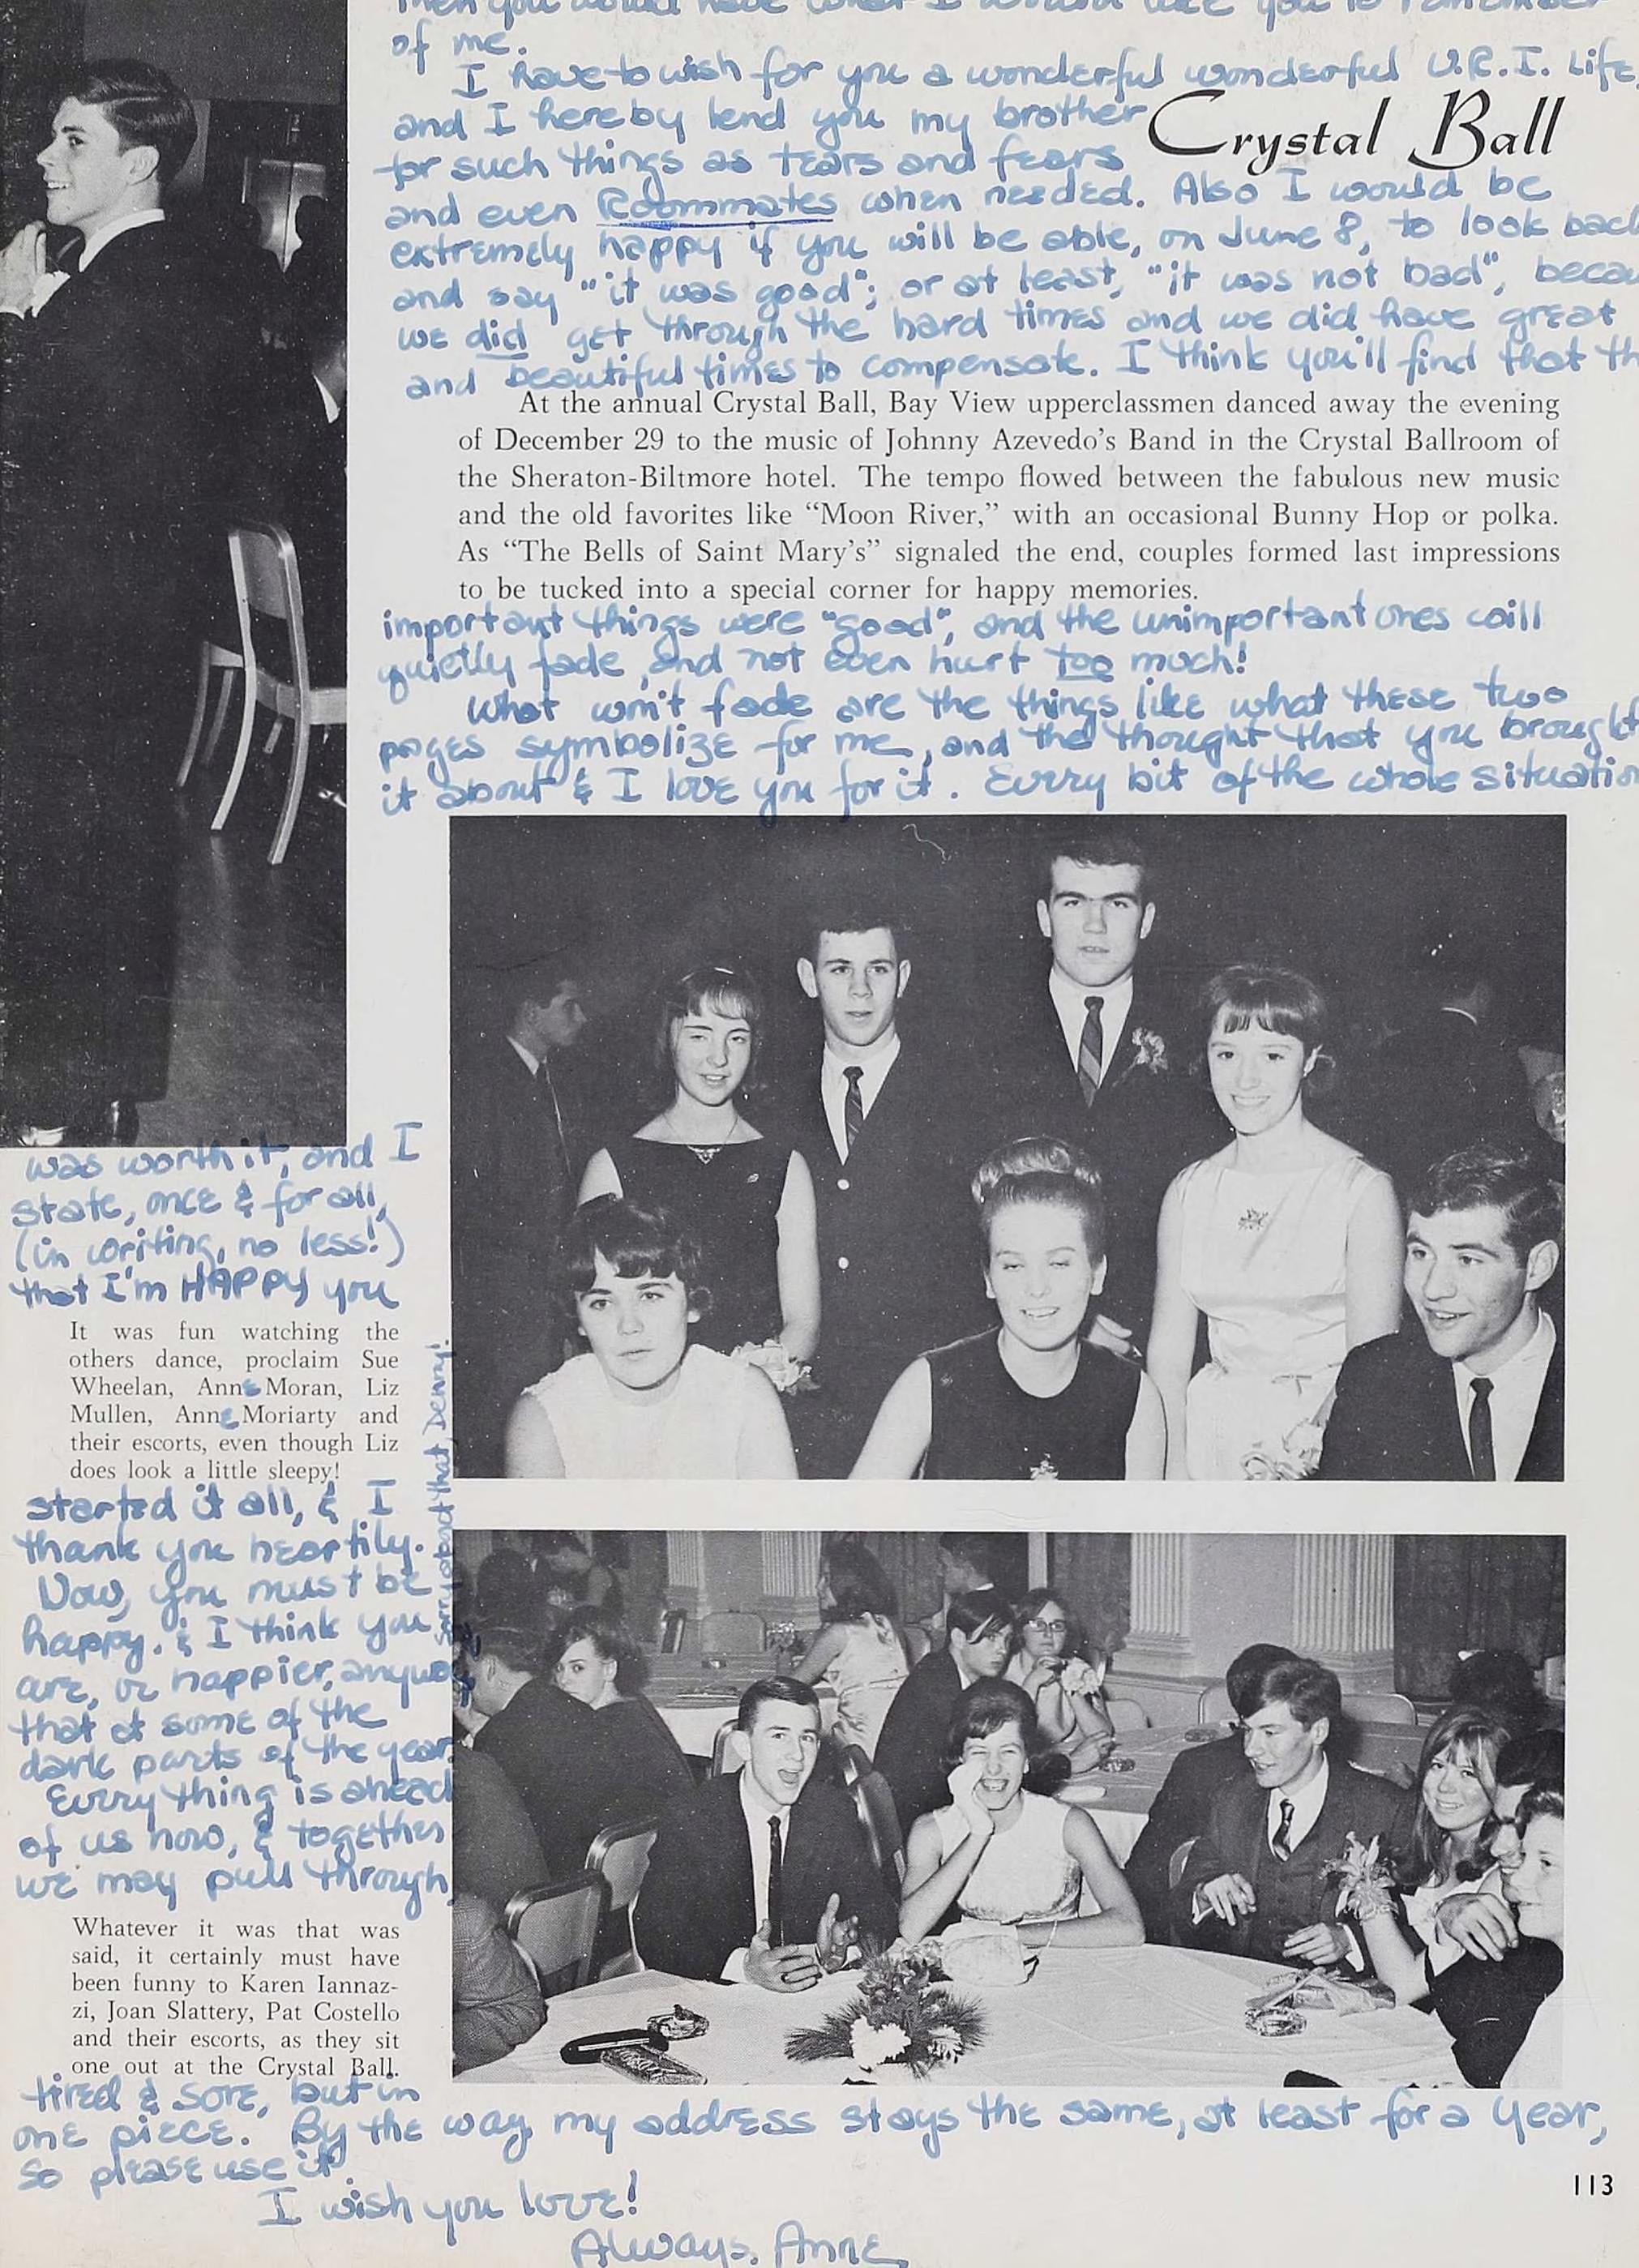 then you would have what I would like you to remember
of me.
I have to wish for you a wonderful wonderful U.R.I. Life,
and I hereby lend you my brother
Crystal Ball
for such things as tears and fears
and even Roommates when needed. Also I would be
extremely happy if you will be able, on June 8, to look back
and say "it was good"; or at least, "it was not bad", becau
we did get through the hard times and we did have great
and beautiful times to compensate. I think you'll find that th
At the annual Crystal Ball, Bay View upperclassmen danced away the evening
of December 29 to the music of Johnny Azevedo's Band in the Crystal Ballroom of
the Sheraton-Biltmore hotel. The tempo flowed between the fabulous new music
and the old favorites like "Moon River," with an occasional Bunny Hop or polka.
As "The Bells of Saint Mary's" signaled the end, couples formed last impressions
to be tucked into a special corner for happy memories.
important things were "good", and the unimportant ones will
quietly fade, and not even hurt too much!
What won't fade are the things like what these two
pages symbolize for me, and the thought that you brought
it about & I love you for it. Every bit of the whole situation
was worth it, and I
state, once & for all,
(in writing, no less!)
that I'm HAPPY you
It was fun watching the
others dance, proclaim Sue
Wheelan, Anne Moran, Liz
Mullen, Anne Moriarty and
their escorts, even though Liz
does look a little sleepy!
started it all, & I
thank you heartily.
Now, you must be
happy. & I think you
are, or happier, anyway
that at some of the
dark parts of the year.
Everything is ahead
of us now, & together
we may pull through,
Sorry about that, Denny!
Whatever it was that was
said, it certainly must have
been funny to Karen Iannaz-
zi, Joan Slattery, Pat Costello
and their escorts, as they sit
one out at the Crystal Ball.
tired & sore, but in
one piece. By the way, my address stays the same, at least for a year,
so please use it.
I wish you love!
Always, Anne
113